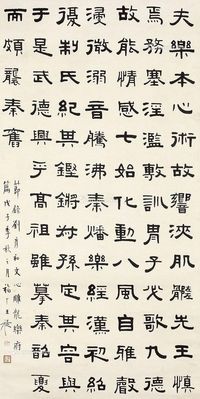 夫樂本心術故響浹肌髓先王慎
焉務塞淫濫敷訓胄子必歌九德
故能情感七始化動八風自雅聲
浸微溺音騰沸秦燔樂經漢初紹
復制氏紀其鏗鏘叔孫定其容典
于是武德興乎高祖雖摹秦韶夏
而頗襲秦舊
節錄劉彥和文心雕龍樂府
篇戊子季秋之月福厂王禔